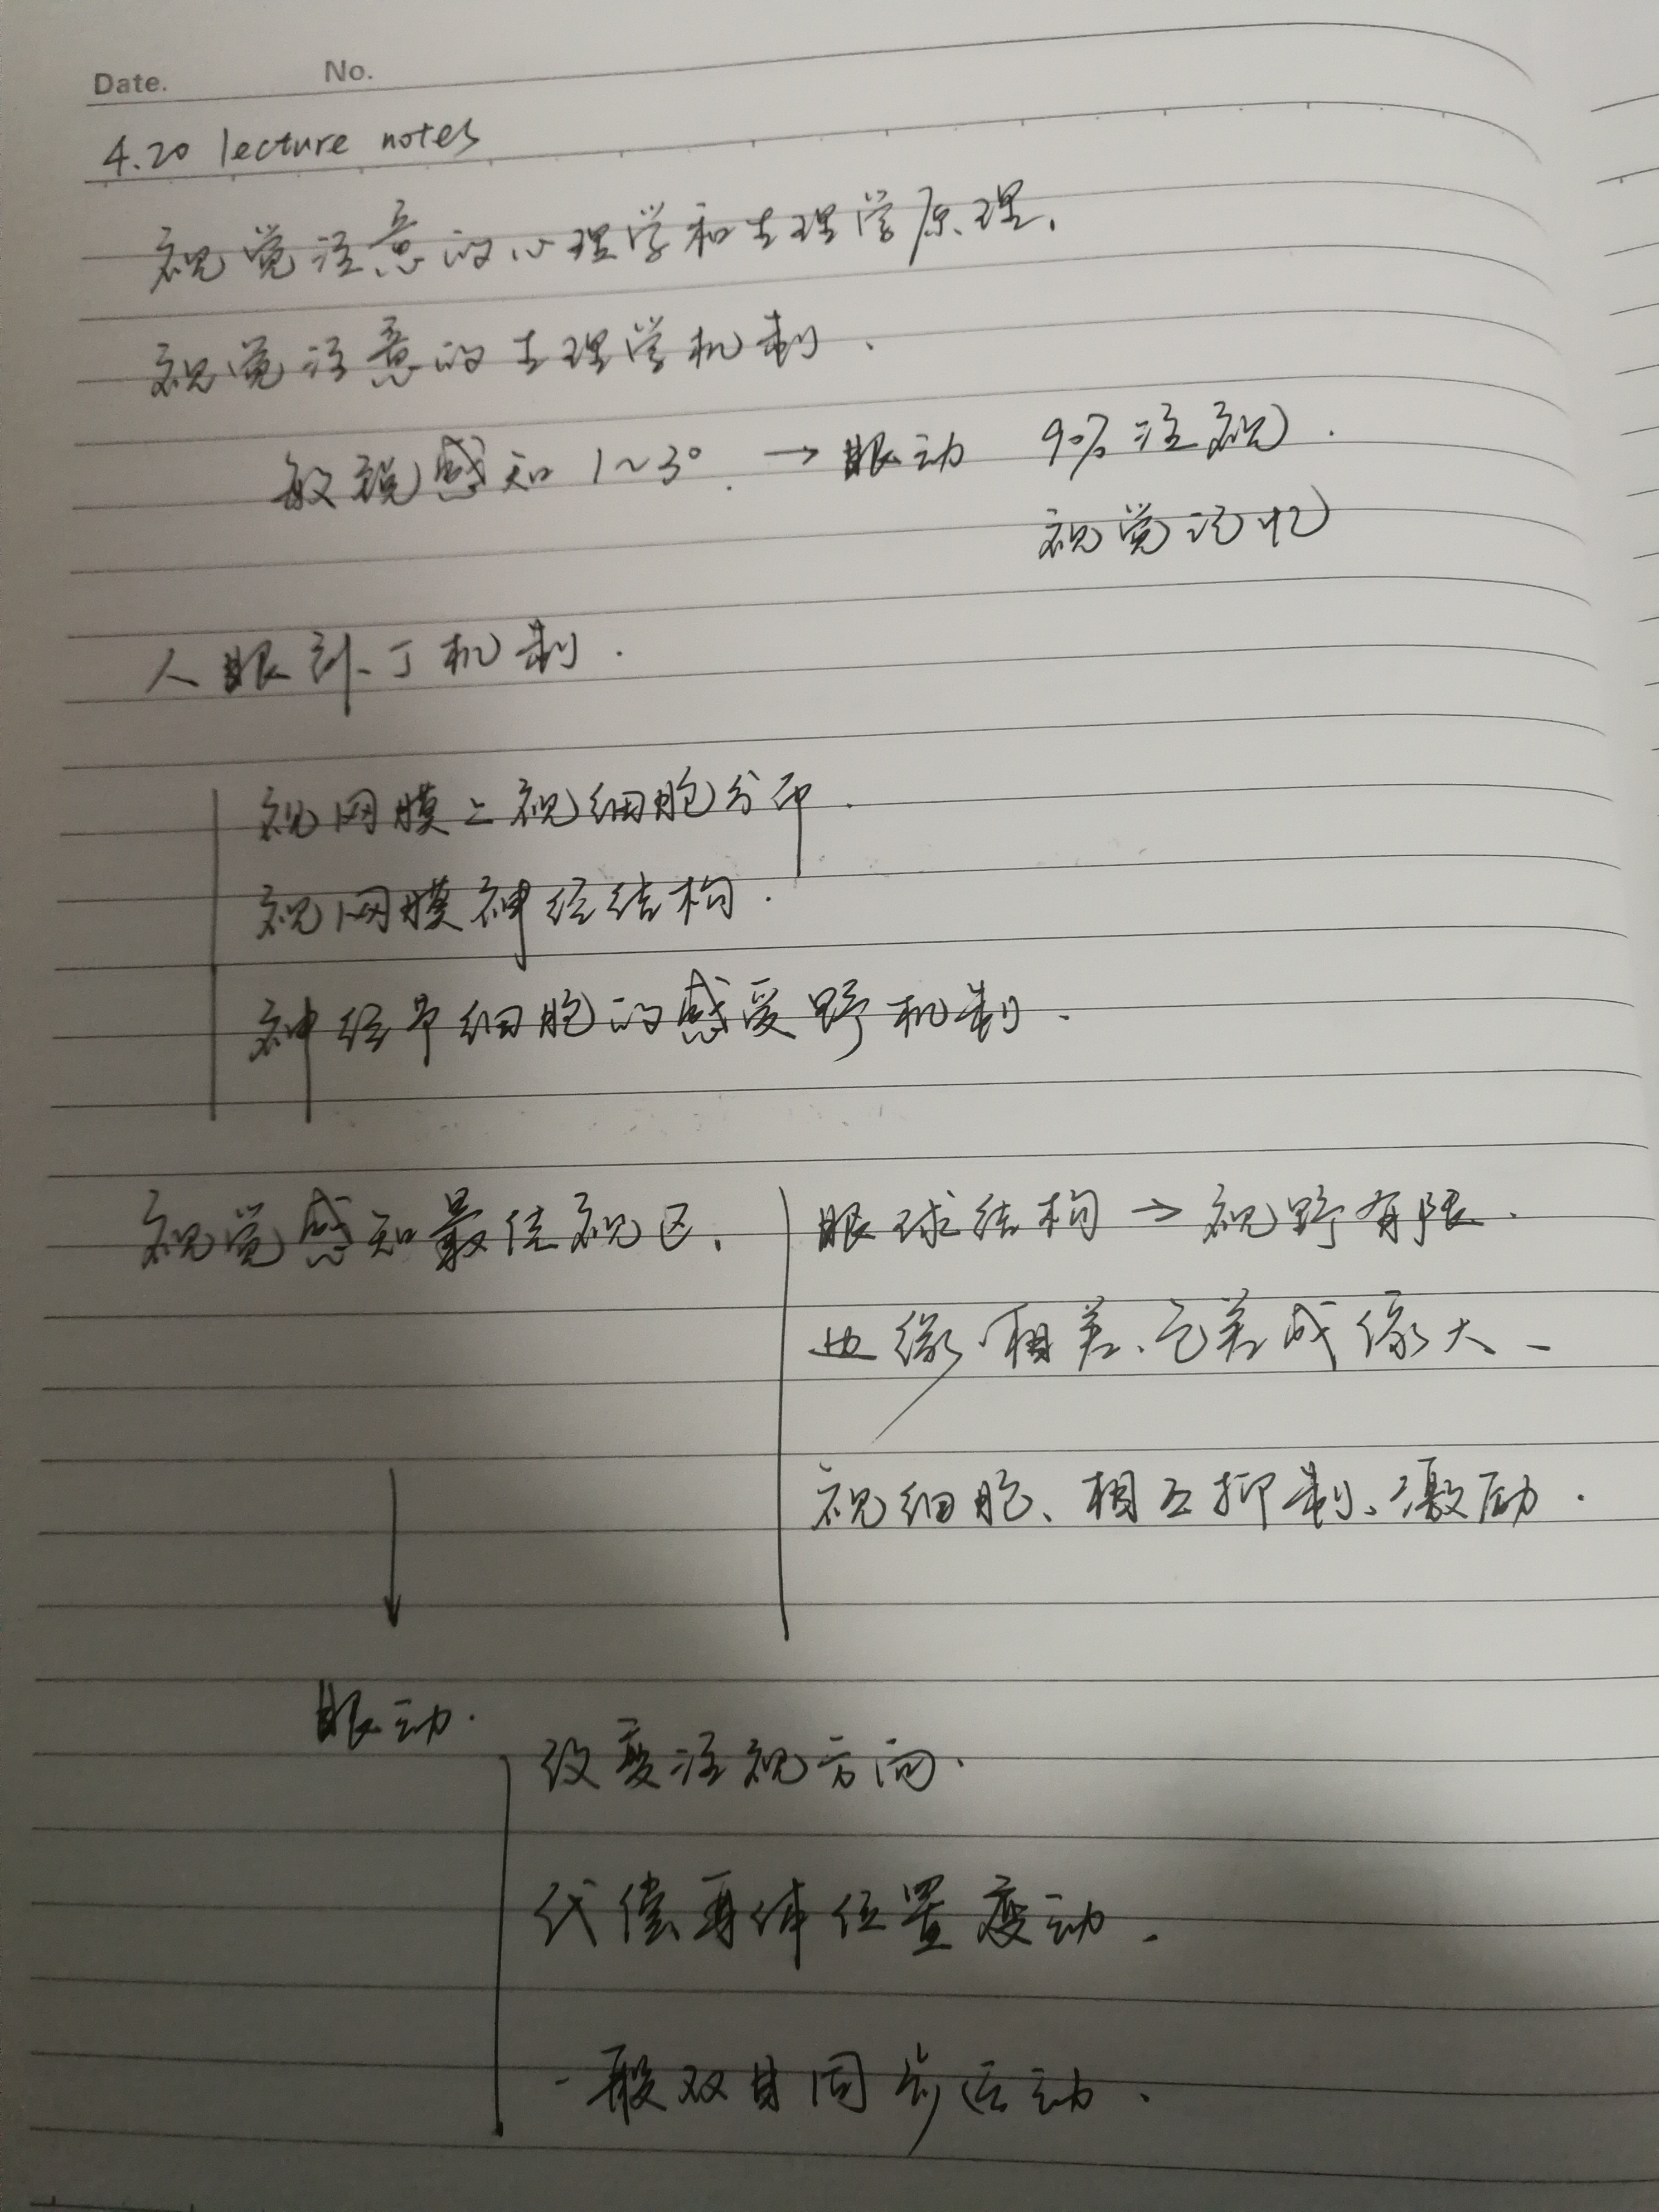 Date. No.
4.20 lecture notes
视觉注意的心理学和生理学原理.
视觉注意的生理学机制.
敏锐感知 1~3°. → 眼动 90% 注视.
视觉记忆
人眼 机制.
视网膜上视细胞分布.
视网膜神经结构.
神经节细胞的感受野机制.
视觉感知最佳视区.
眼球结构 → 视野有限.
边缘相差、色差成像大.
视细胞、相互抑制、激励.
眼动.
改变注视方向.
代偿身体位置变动.
一般双目同步运动.